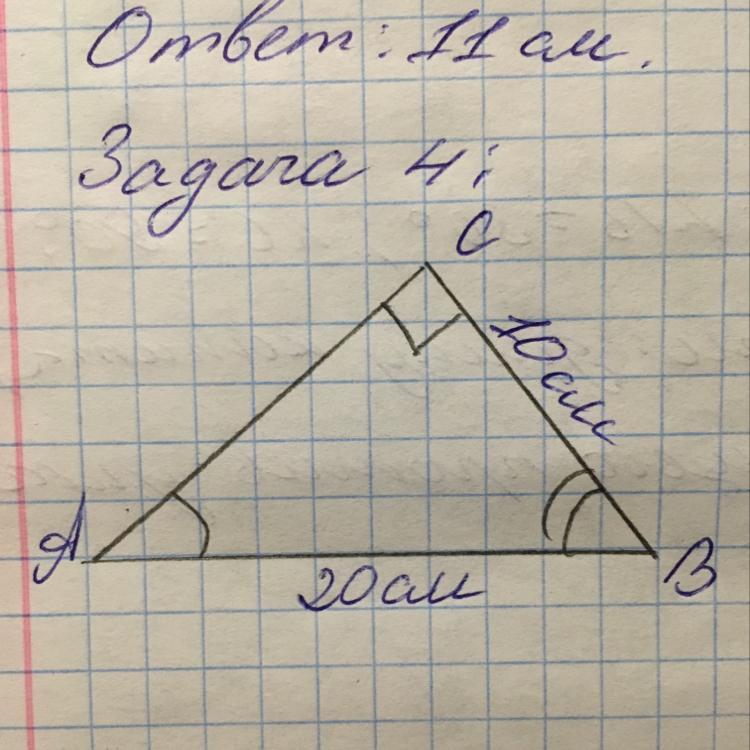 Ответ: 11 см.
Задача 4:
C
10 см
A
B
20 см